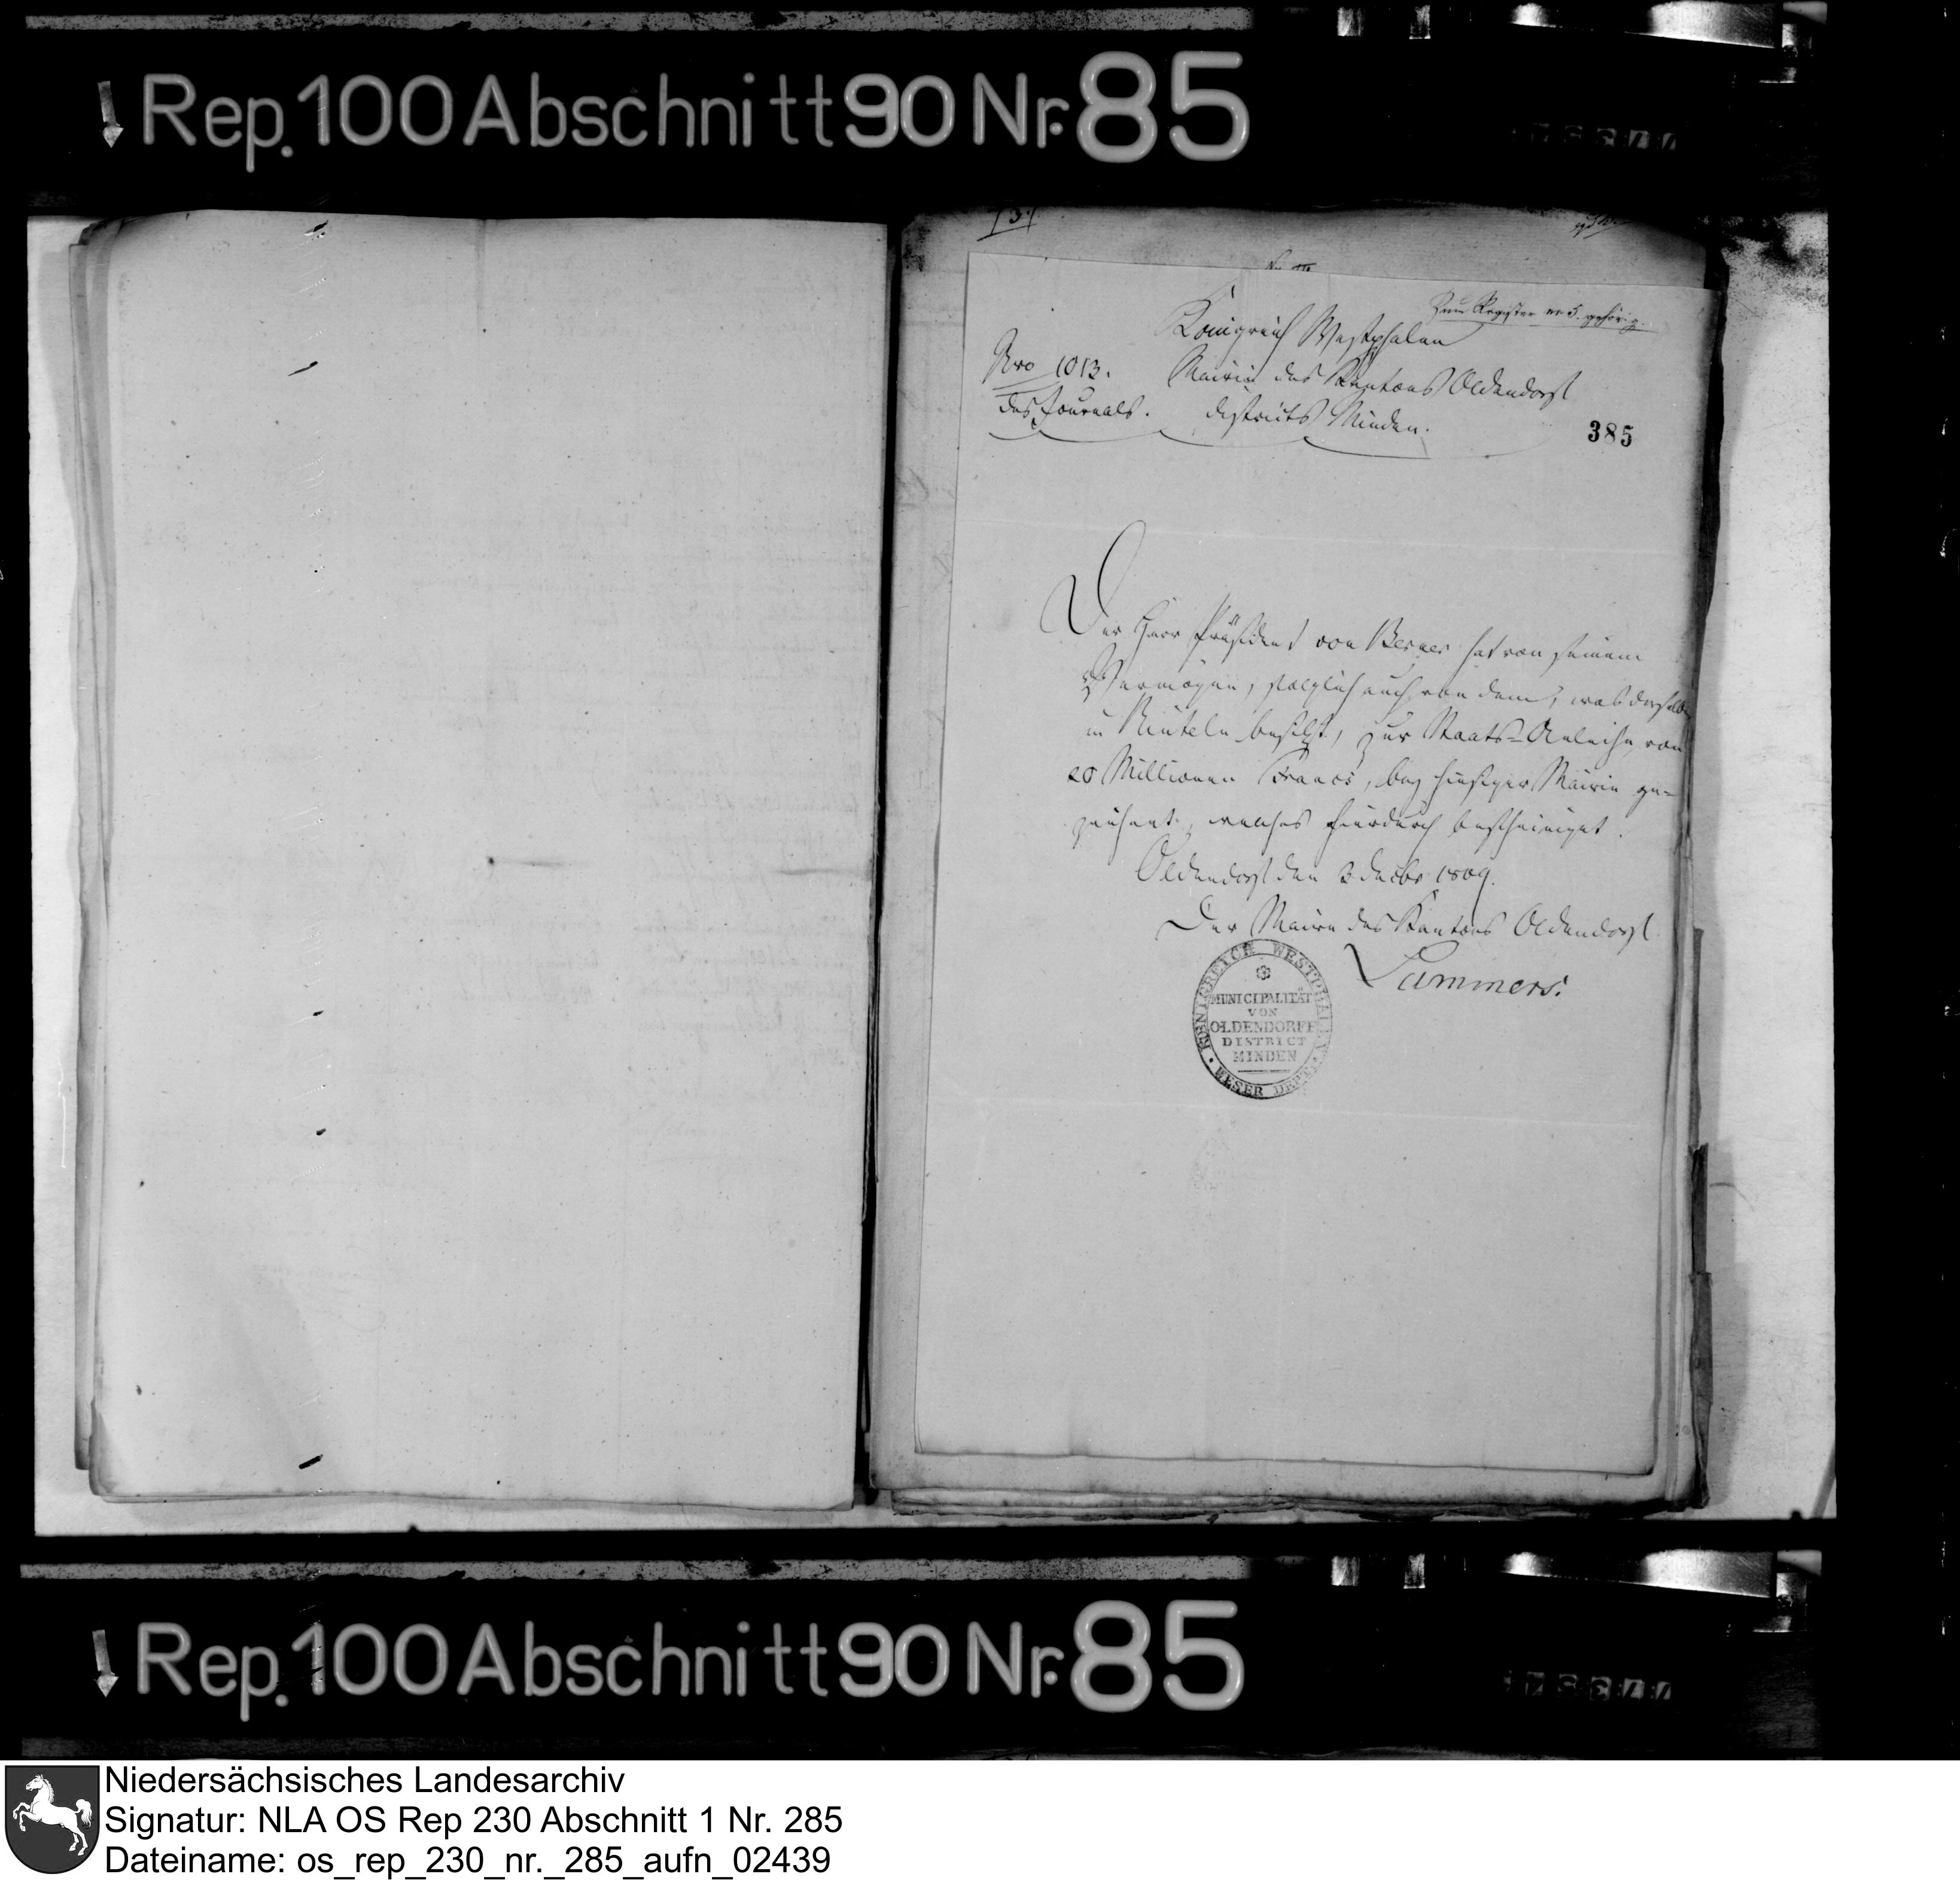 Rep. 100 Abschnitt 90 Nr. 85
Zum Register no 5. gehörig.
Königreich Westphalen
Nro 1013. Mairie des Kantons Oldendorf
des Journals. districts Minden.
385
Der Herr Präsident von Berner hat von seinem
Vermögen, folglich auch von dem, was derselbe
in Rinteln besitzt, zur Staats-Anleihe von
20 Millionen Francs, bey hiesiger Mairie ge-
zeichnet, welches hierdurch bescheiniget.
Oldendorf den 3 decbr 1809.
Der Maire des Kantons Oldendorf.
Lammers.
KOENIGREICH WESTPHALEN
MUNICIPALITÄT
VON
OLDENDORFF
DISTRICT
MINDEN
WESER DEPT.
Rep. 100 Abschnitt 90 Nr. 85
Niedersächsisches Landesarchiv
Signatur: NLA OS Rep 230 Abschnitt 1 Nr. 285
Dateiname: os_rep_230_nr._285_aufn_02439